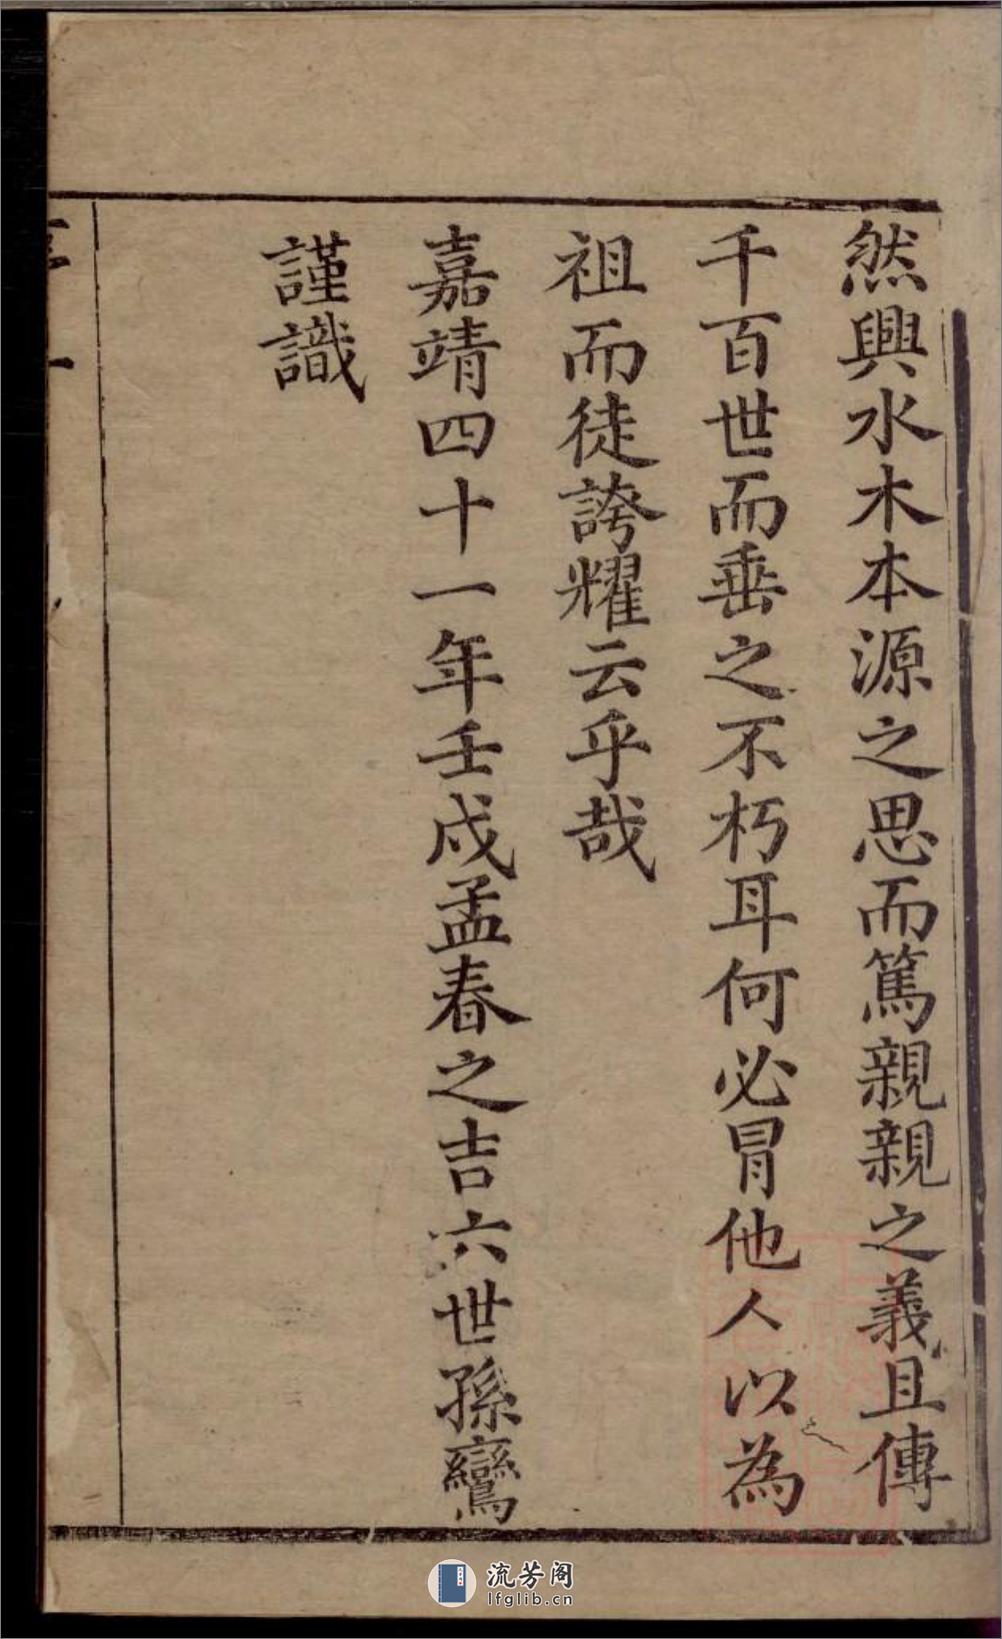 然興水木本源之思而篤親親之義且傳
千百世而垂之不朽耳何必冒他人以為
祖而徒誇耀云乎哉
嘉靖四十一年壬戌孟春之吉六世孫鸞
謹識
流芳阁
lfglib.cn